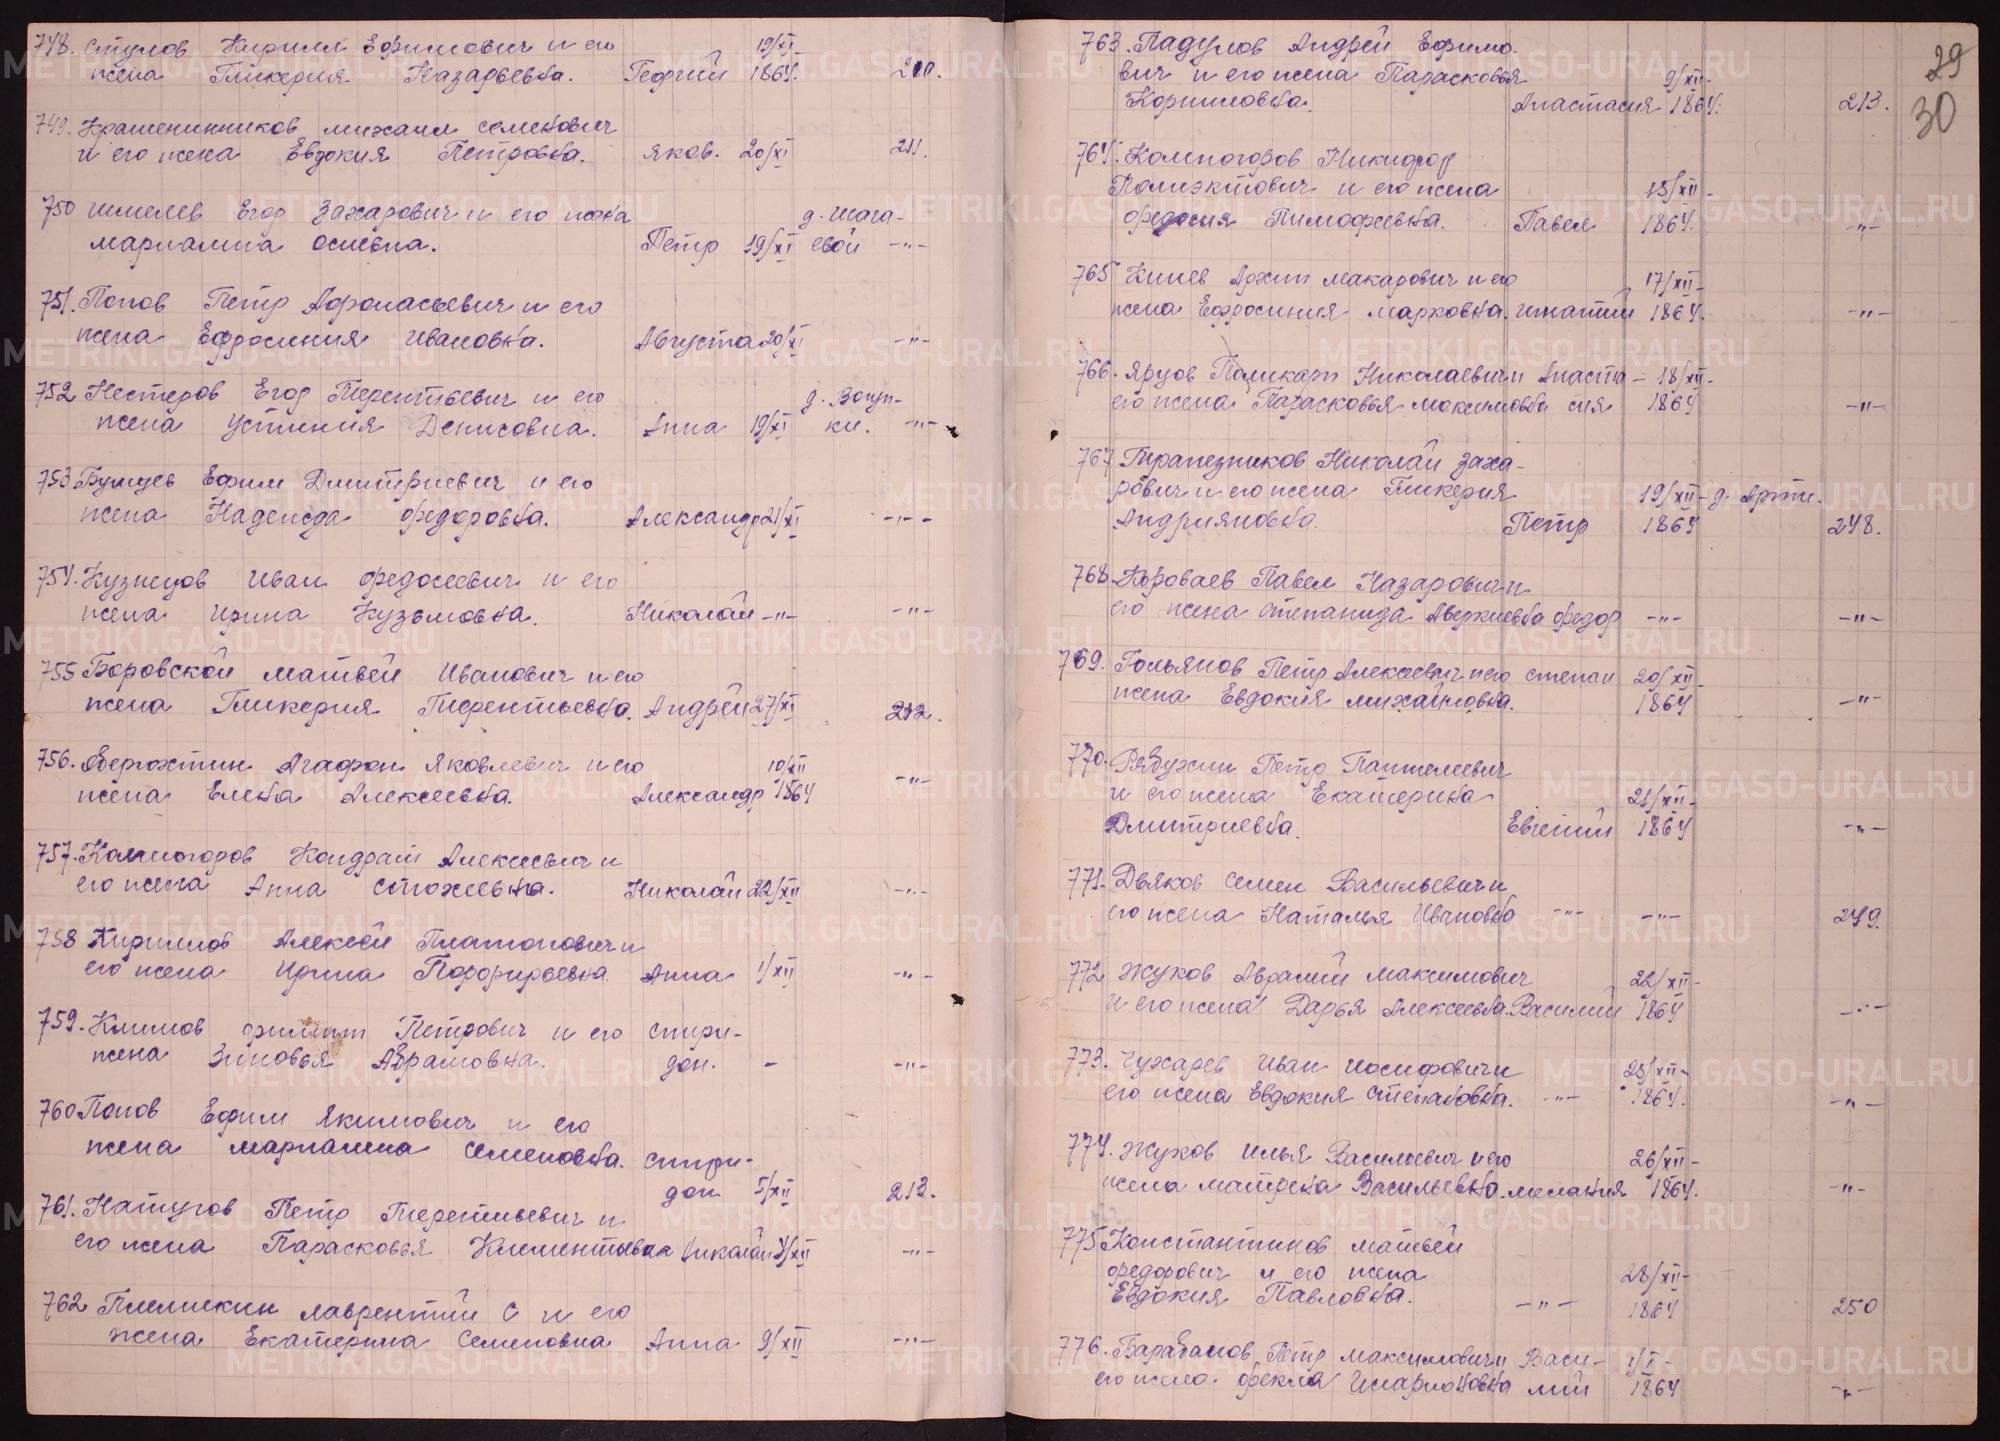 748. Стулов Кирилл Ефимович и его 19/XI
жена Гликерия Назарьевна. Георгий 1864. 210.
749. Крашенинников Михаил Семенович
и его жена Евдокия Петровна. Яков. 20/XI 211.
750 Шмелев Егор Захарович и его жена д. Шага-
Марианна Осиевна. Петр 19/XI евой -"-
751. Попов Петр Афонасьевич и его
жена Ефросиния Ивановна. Августа 20/XI -"-
752 Нестеров Егор Терентьевич и его д.
жена Устиния Денисовна. Анна 19/XI ки. -"-
753 Бунцев Ефим Дмитриевич и его
жена Надежда Федоровна. Александр 21/XI -"-
754. Кузнецов Иван Федосеевич и его
жена Ирина Кузьмовна. Николай -"- -"-
755 Боровской Матвей Иванович и его
жена Гликерия Терентьевна. Андрей 27/XI 212.
756. Оберюхтин Агафон Яковлевич и его 10/XII
жена Елена Алексеевна. Александр 1864 -"-
757. Колмогоров Кондрат Алексеевич и
его жена Анна Николай 22/XII -"-
758 Кирилов Алексей Платонович и
его жена Ирина Порфирьевна Анна 1/XII -"-
759. Климов Филипп Петрович и его Спири-
жена Зиновья Абрамовна. дон. - -"-
760 Попов Ефим Якимович и его
жена Марианна Семеновна. Спири-
дон 5/XII 213.
761. Натугов Петр Терентьевич и
его жена Парасковья Климентьевна Николай 4/XII -"-
762 Плешкин Лаврентий С и его
жена Екатерина Семеновна Анна 9/XII -"-
29
30
763. Падулов Андрей Ефимо-
вич и его жена Парасковья 9/XII-
Корниловна. Анастасия 1864. 213.
764. Колмогоров Никифор
Полиэктович и его жена 15/XII-
Федосия Тимофеевна. Павел 1864. -"-
765 Кинев Архип Макарович и его 17/XII-
жена Ефросиния Марковна. Игнатий 1864. -"-
766. Ярцов Поликарп Николаевич и Анаста- 18/XII-
его жена Парасковья Максимовна сия 1864 -"-
767 Трапезников Николай Заха-
рович и его жена Гликерия 19/XII- д. Арти.
Андрияновна. Петр 1864 248.
768. Короваев Павел Назарович и
его жена Степанида Аверкиевна Федор -"- -"-
769. Гольянов Петр Алексеевич и его Степан 20/XII-
жена Евдокия Михайловна. 1864 -"-
770. Рябухин Петр Пантелеевич
и его жена Екатерина 21/XII-
Дмитриевна. Евгений 1864 -"-
771. Дьяков Семен Васильевич и
его жена Наталья Ивановна -"- -"- 249.
772 Жуков Аврамий Максимович 22/XII-
и его жена Дарья Алексеевна. Василий 1864 -"-
773. Чухарев Иван Иосифович и 25/XII-
его жена Евдокия Степановна. -"- 1864. -"-
774. Жуков Илья Васильевич и его 26/XII-
жена Матрена Васильевна. Мелания 1864. -"-
775 Константинов Матвей
Федорович и его жена 28/XII-
Евдокия Павловна. -"- 1864 250
776. Барабанов Петр Максимович и Васи- 1/I-
его жена. Фекла Иларионовна лий 1864 -"-